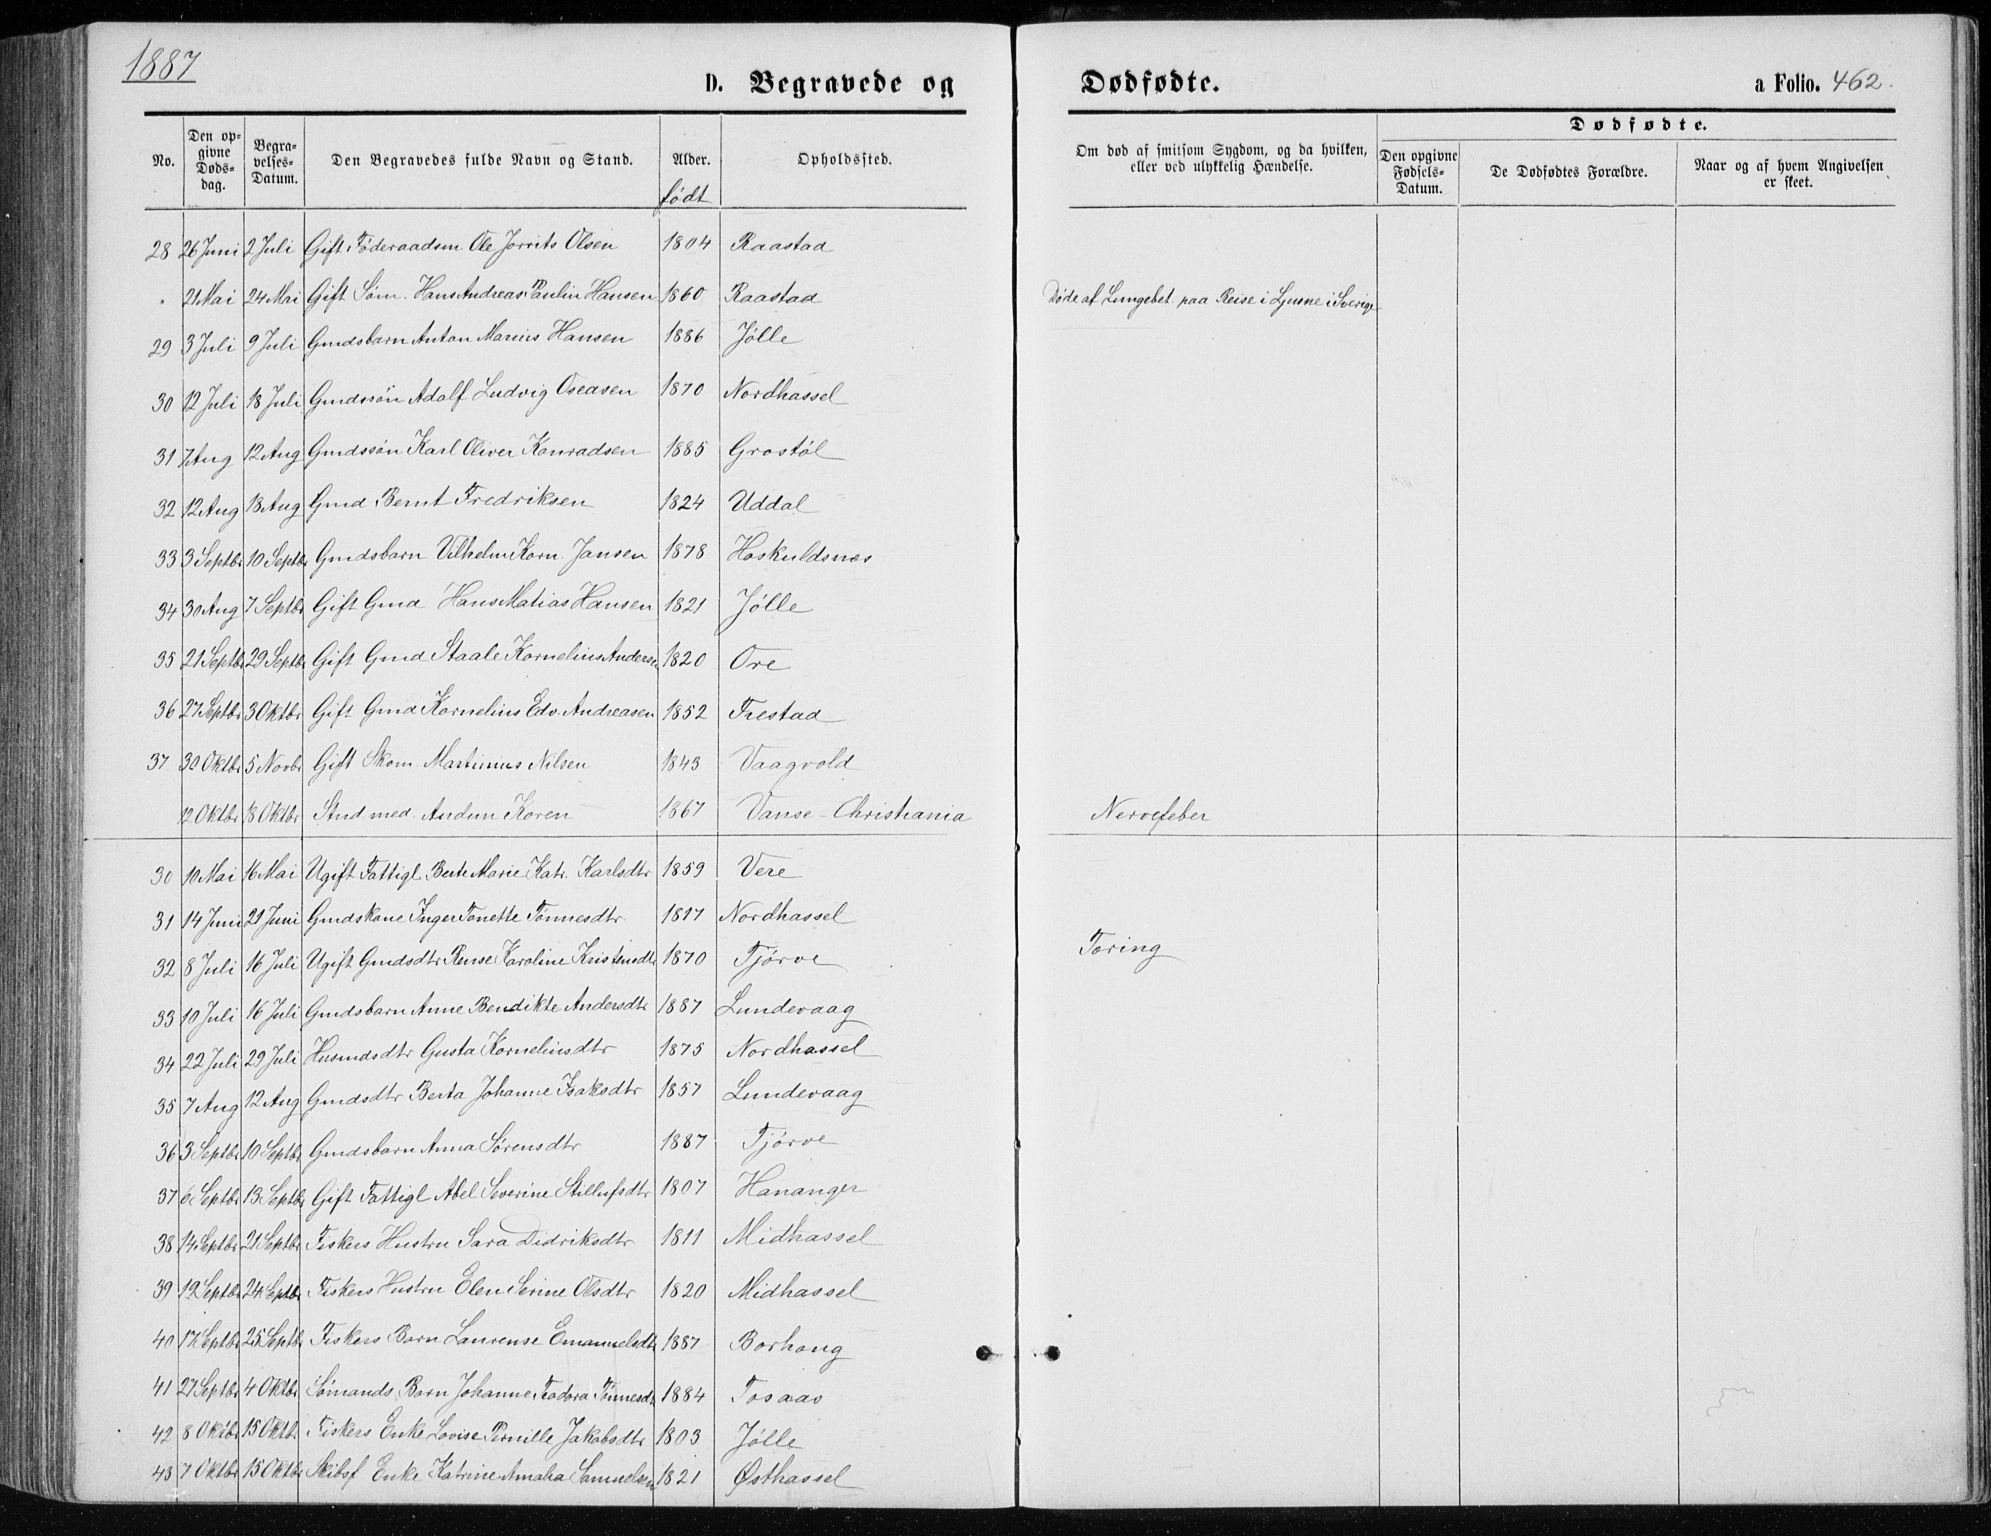 1887
D. Begravede og Dødfødte. a Folio. 462.
No. Den opgivne Dødsdag. Begravelses-Datum. Den Begravedes fulde Navn og Stand. Alder. født Opholdssted. Om død af smitsom Sygdom, og da hvilken, eller ved ulykkelig Hændelse. Dødfødte. Den opgivne Fødsels-Datum. De Dødfødtes Forældre. Naar og af hvem Angivelsen er skeet.
28 26 Juni 2 Juli Gift Føderaadsm Ole Jorrits Olsen 1804 Raastad
" 21 Mai 24 Mai Gift Søm. Hans Andreas Paulin Hansen 1860 Raastad Døde af Lungebet. paa Reise i Ljusne i Sverige
29 3 Juli 9 Juli Gmdsbarn Anton Marius Hansen 1886 Jølle
30 12 Juli 18 Juli Gmdssøn Adolf Ludvig Oseasen 1870 Nordhassel
31 7 Aug 12 Aug Gmdssøn Karl Oliver Konradsen 1885 Grostøl
32 12 Aug 18 Aug Gmd Bernt Fredriksen 1824 Uddal
33 3 Septbr 10 Septbr Gmdsbarn Vilhelm Korn. Jansen 1878 Haskuldsnes
34 30 Aug 7 Septbr Gift Gmd Hans Matias Hansen 1821 Jølle
35 21 Septbr 29 Septbr Gift Gmd Staale Kornelius Andersen 1820 Ore
36 27 Septbr 3 Oktbr Gift Gmd Kornelius Edv. Andreasen 1852 Frestad
37 30 Oktbr 5 Novbr Gift Skom. Martinius Nilsen 1843 Vaagvold
12 Oktbr 18 Oktbr Stud med. Audun Koren 1867 Vanse - Christiania Nervefeber
30 10 Mai 16 Mai Ugift Fattigl Berte Marie Katr. Karlsdtr 1859 Vere
31 14 Juni 21 Juni Gmdskone Inger Tonette Tønnesdtr 1817 Nordhassel
32 8 Juli 16 Juli Ugift Gmdsdtr Rense Karoline Kristensdtr 1870 Tjørve Tæring
33 10 Juli 16 Juli Gmdsbarn Anne Bendikte Andersdtr 1887 Lundevaag
34 22 Juli 29 Juli Husmdsdtr Gusta Korneliusdtr 1875 Nordhassel
35 7 Aug 12 Aug Gmdsdtr Berta Johanne Isaksdtr 1857 Lundevaag
36 3 Septbr 10 Septbr Gmdsbarn Anna Sørensdtr 1887 Tjørve
37 6 Septbr 13 Septbr Gift Fattigl Abel Severine Stillufsdtr 1807 Hananger
38 14 Septbr 21 Septbr Fiskers Hustru Sara Didriksdtr 1811 Midhassel
39 19 Septbr 24 Septbr Fiskers Hustru Elen Serine Olsdtr 1820 Midhassel
40 17 Septbr 25 Septbr Fiskers Barn Laurense Emanuelsdtr 1887 Borhaug
41 27 Septbr 4 Oktbr Sømands Barn Johanne Teodora Tønnesdtr 1884 Tosaas
42 8 Oktbr 15 Oktbr Fiskers Enke Lovise Pernille Jakobsdtr 1803 Jølle
43 7 Oktbr 15 Oktbr Skibsf Enke Katrine Amalia Samuelsen 1821 Østhassel